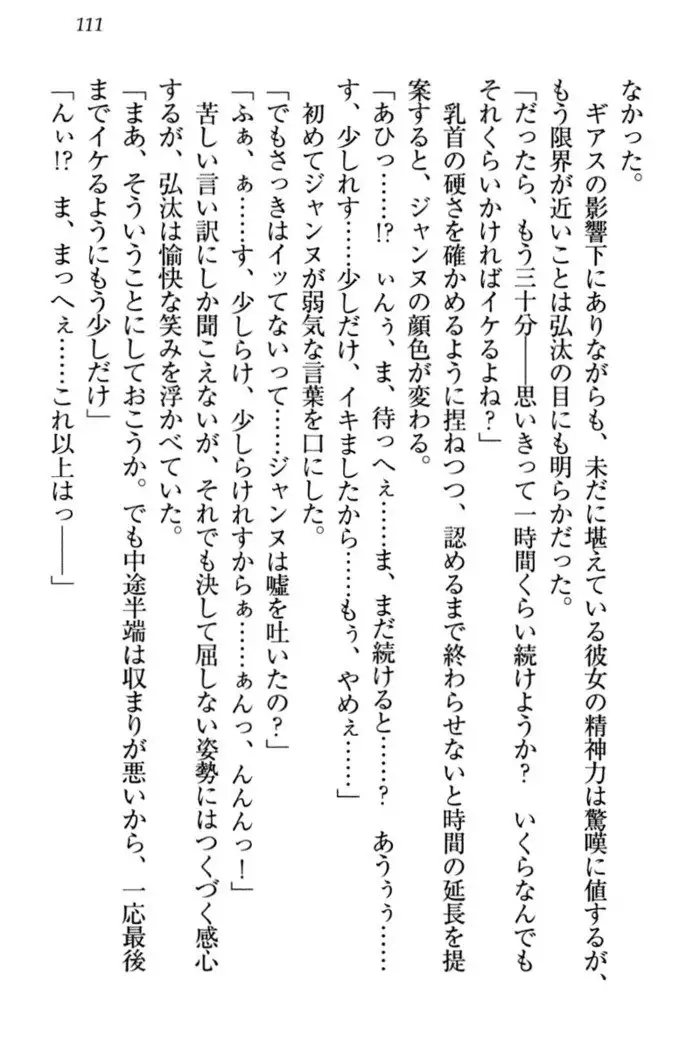 111
なかった。
　ギアスの影響下にありながらも、未だに堪えている彼女の精神力は驚嘆に値するが、
もう限界が近いことは弘汰の目にも明らかだった。
「だったら、もう三十分――思いきって一時間くらい続けようか？　いくらなんでも
それくらいかければイケるよね？」
　乳首の硬さを確かめるように捏ねつつ、認めるまで終わらせないと時間の延長を提
案すると、ジャンヌの顔色が変わる。
「あひっ……!?　ぃんぅ、ま、待っへぇ……ま、まだ続けると……？　あうぅぅ……
す、少しれす……少しだけ、イキましたから……もぅ、やめぇ……」
　初めてジャンヌが弱気な言葉を口にした。
「でもさっきはイッてないって……ジャンヌは嘘を吐いたの？」
「ふぁ、ぁ……す、少しらけ、少しらけれすからぁ……ぁんっ、んんんっ！」
　苦しい言い訳にしか聞こえないが、それでも決して屈しない姿勢にはつくづく感心
するが、弘汰は愉快な笑みを浮かべていた。
「まあ、そういうことにしておこうか。でも中途半端は収まりが悪いから、一応最後
までイケるようにもう少しだけ」
「んぃ!?　ま、まっへぇ……これ以上はっ――」